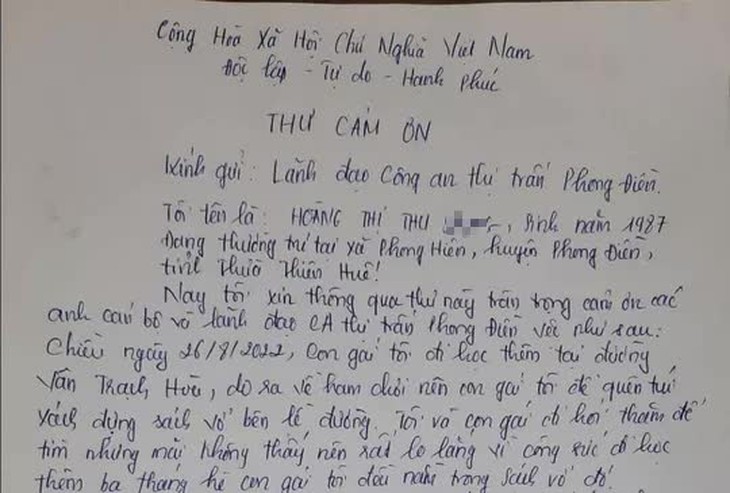 Cộng Hoà Xã Hội Chủ Nghĩa Việt Nam
Độc lập - Tự do - Hạnh Phúc
THƯ CẢM ƠN
Kính gửi: Lãnh đạo Công an thị trấn Phong Điền.
Tôi tên là: HOÀNG THỊ THU , Sinh năm 1987
Đang thường trú tại xã Phong Hiền, huyện Phong Điền,
tỉnh Thừa Thiên Huế!
Nay tôi xin thông qua thư này trân trọng cảm ơn các
anh cán bộ và lãnh đạo CA thị trấn Phong Điền với như sau:
Chiều ngày 26/8/2022, con gái tôi đi học thêm tại đường
Văn Trạch Hoà, do ra về ham chơi nên con gái tôi để quên túi
xách đựng sách vở bên lề đường. Tôi và con gái có hỏi thăm để
tìm nhưng mãi không thấy nên rất lo lắng vì công sức đi học
thêm ba tháng hè con gái tôi đều nằm trong sách vở đó!